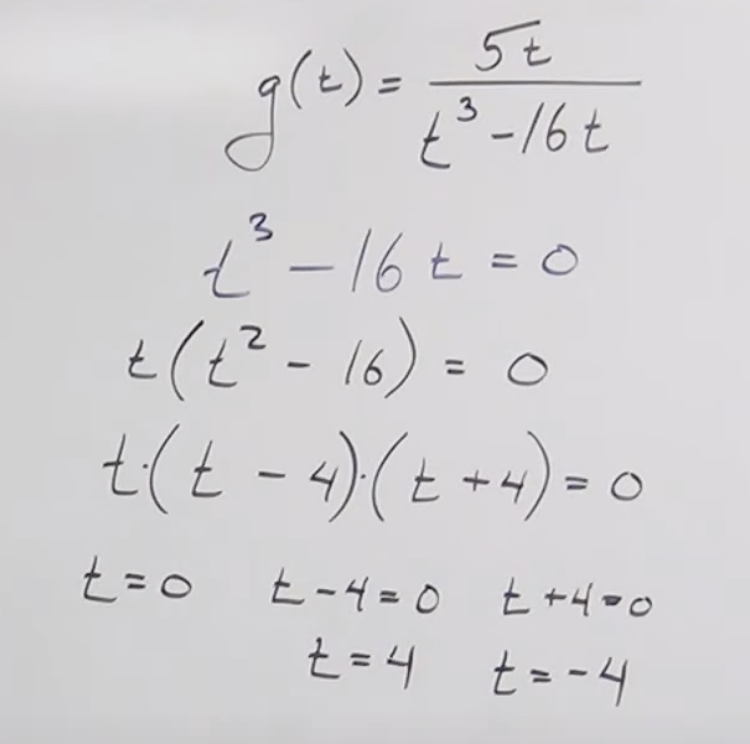 g(t) = 5t / t³ - 16t
t³ - 16t = 0
t(t² - 16) = 0
t·(t - 4)·(t + 4) = 0
t = 0   t - 4 = 0   t + 4 = 0
t = 4   t = -4